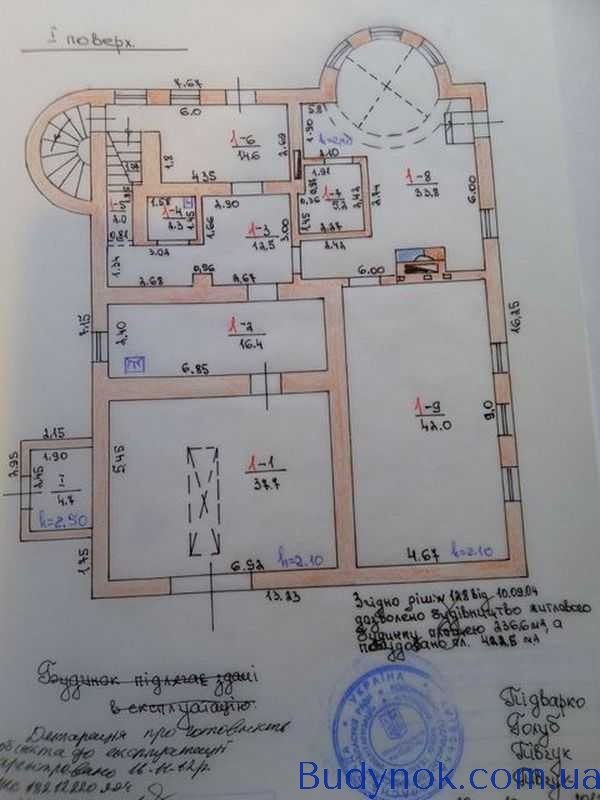 І поверх.
7.67
6.0
5.8
1-6
14.6
2.69
1.90
h=2.10
1.8
4.35
2.10
1-8
33.8
6.00
1.91
1-7
5.2
2.42
2.74
0.36
1.45
2.27
2.42
1.68
1-4
2.3
1.45
2.90
1.66
1-3
12.5
3.00
2.0
0.81
3.02
1.34
2.68
0.96
2.67
6.00
7.15
2.40
1-2
16.4
6.85
16.25
1-9
42.0
9.0
2.15
1.90
2.95
2.45
І
4.7
h=2.50
1.75
5.45
1-1
37.7
6.92
h=2.10
4.67
h=2.10
13.23
Згідно ріш. № 128 від 10.09.04
дозволено будівництво житлового
будинку площею 236,6 м², а
побудовано пл. 422,5 м²
Будинок підлягає здачі
в експлуатацію.
Декларація про готовність
об'єкта до експлуатації
УКРАЇНА
Підварко
Голуб
Півчук
Півчук
Budynok.com.ua